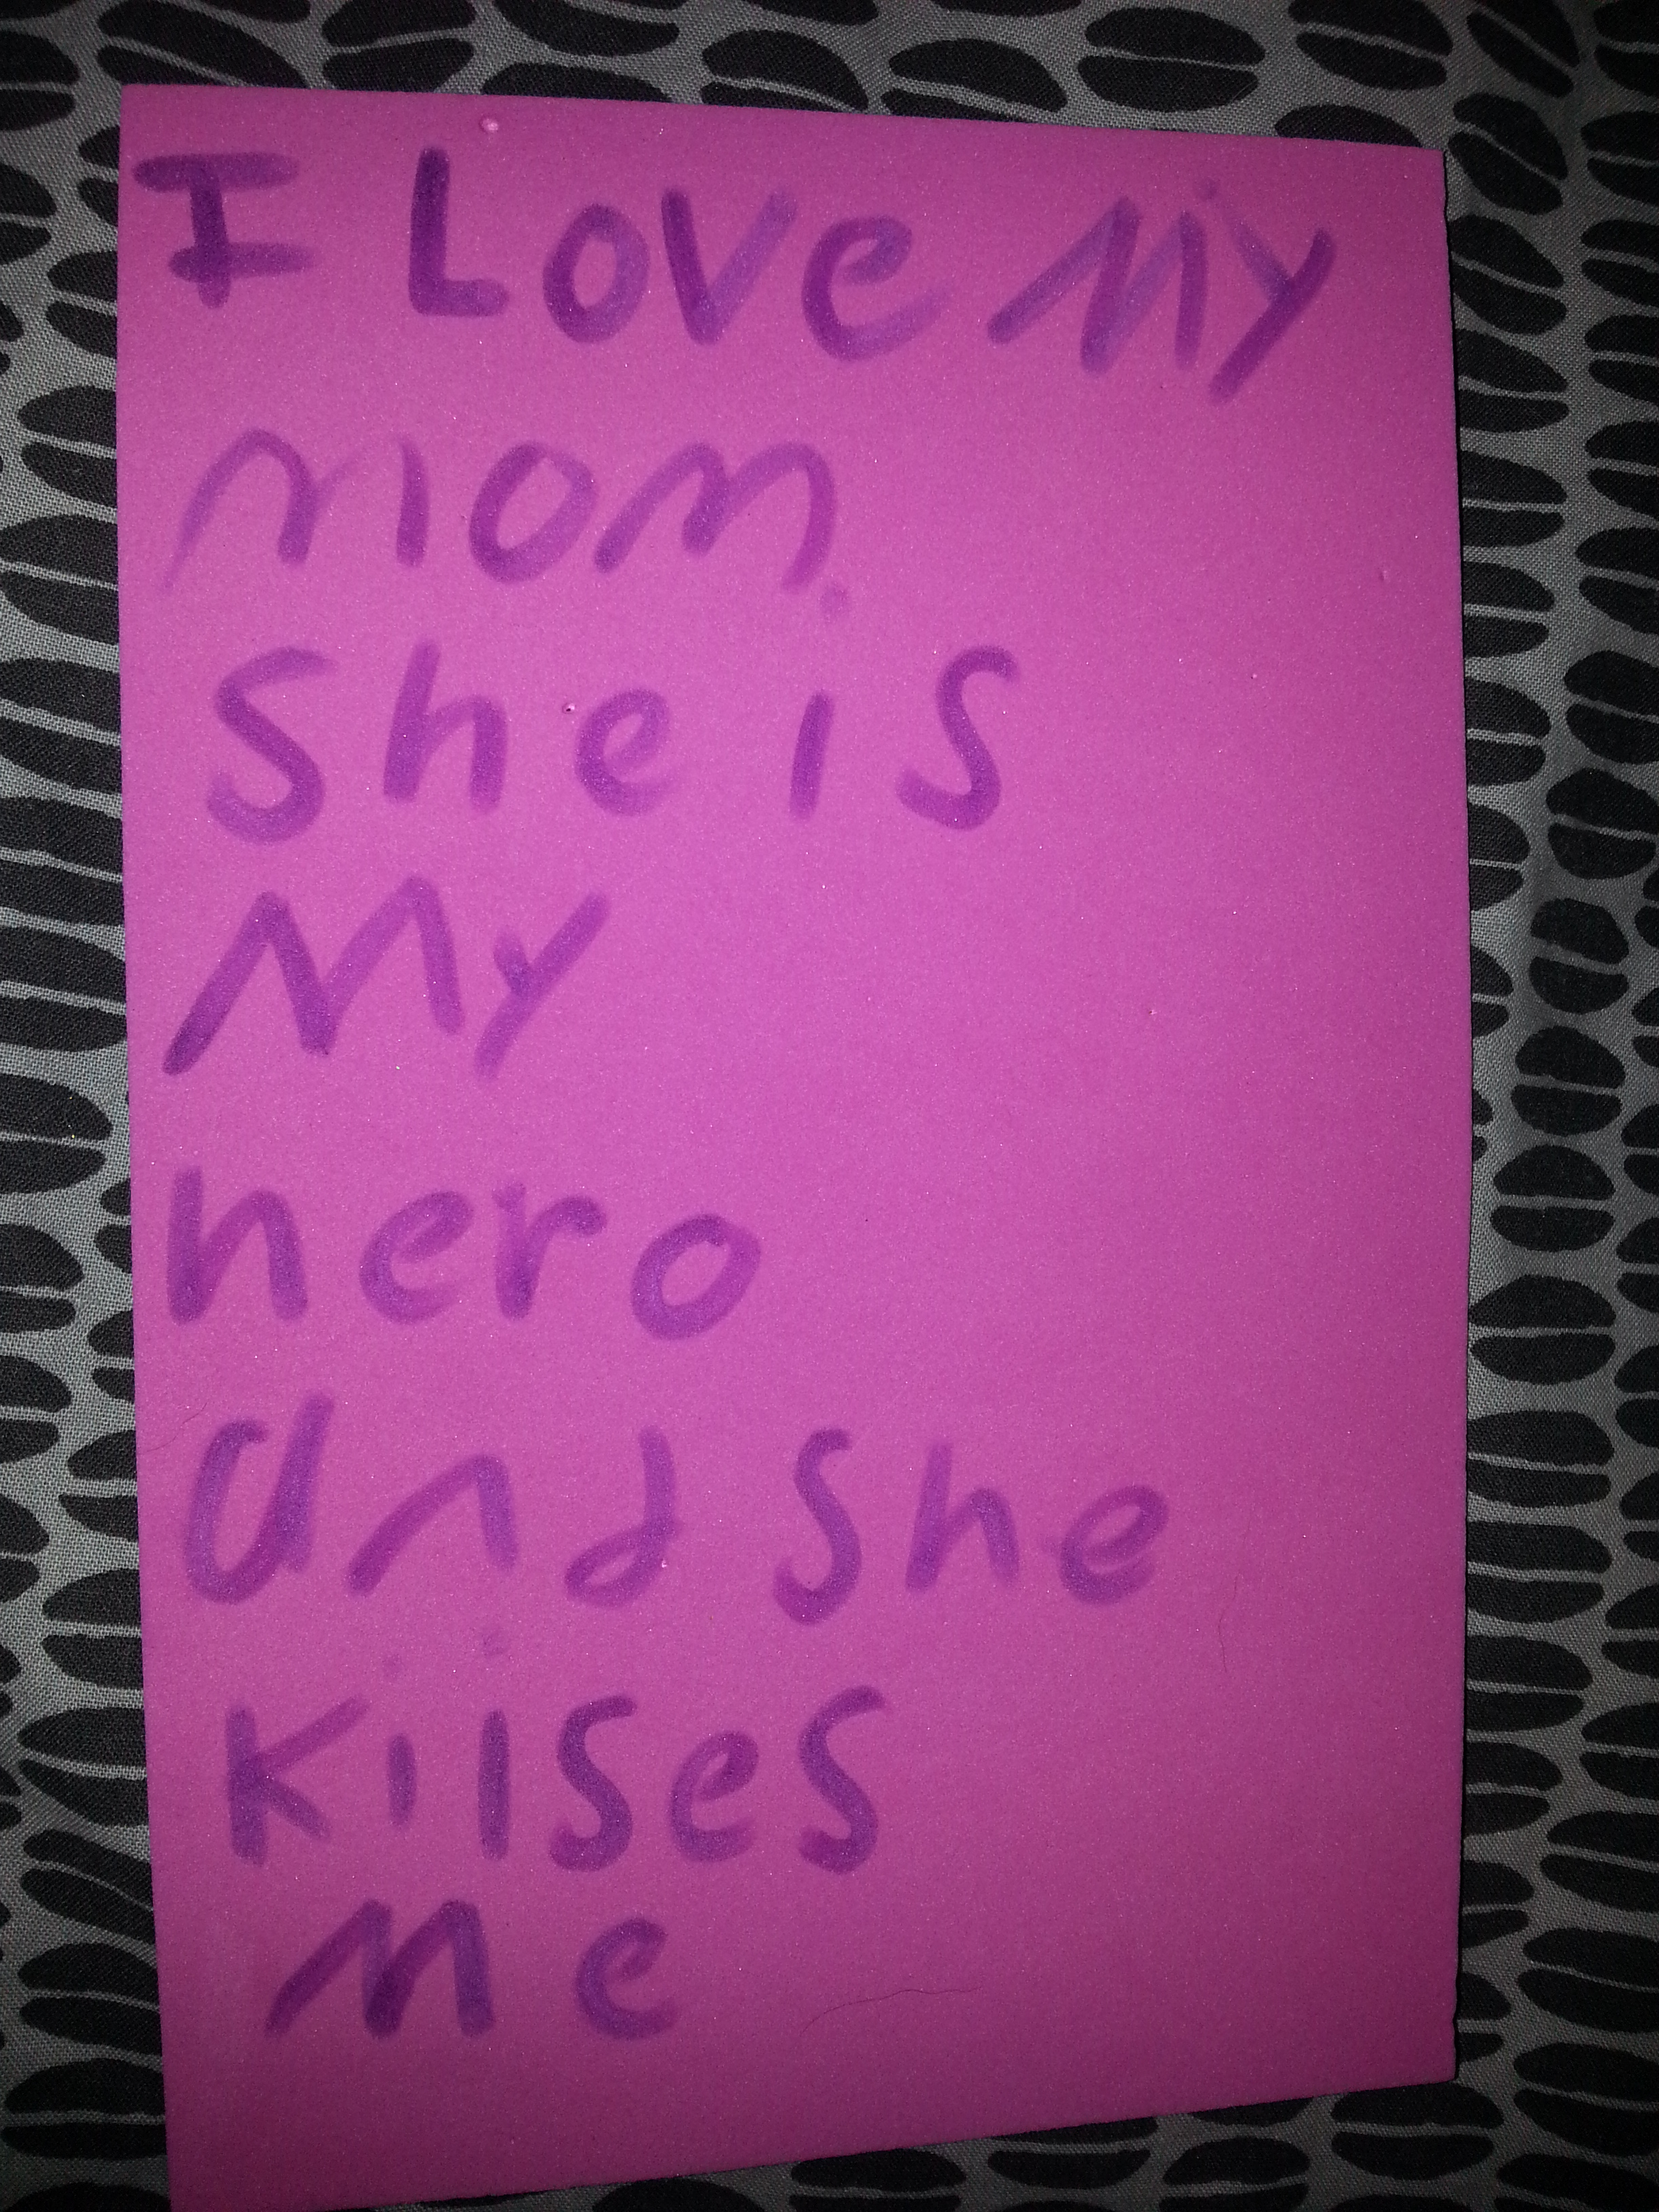 I Love My
mom.
She is
My
hero
and she
kiises
Me